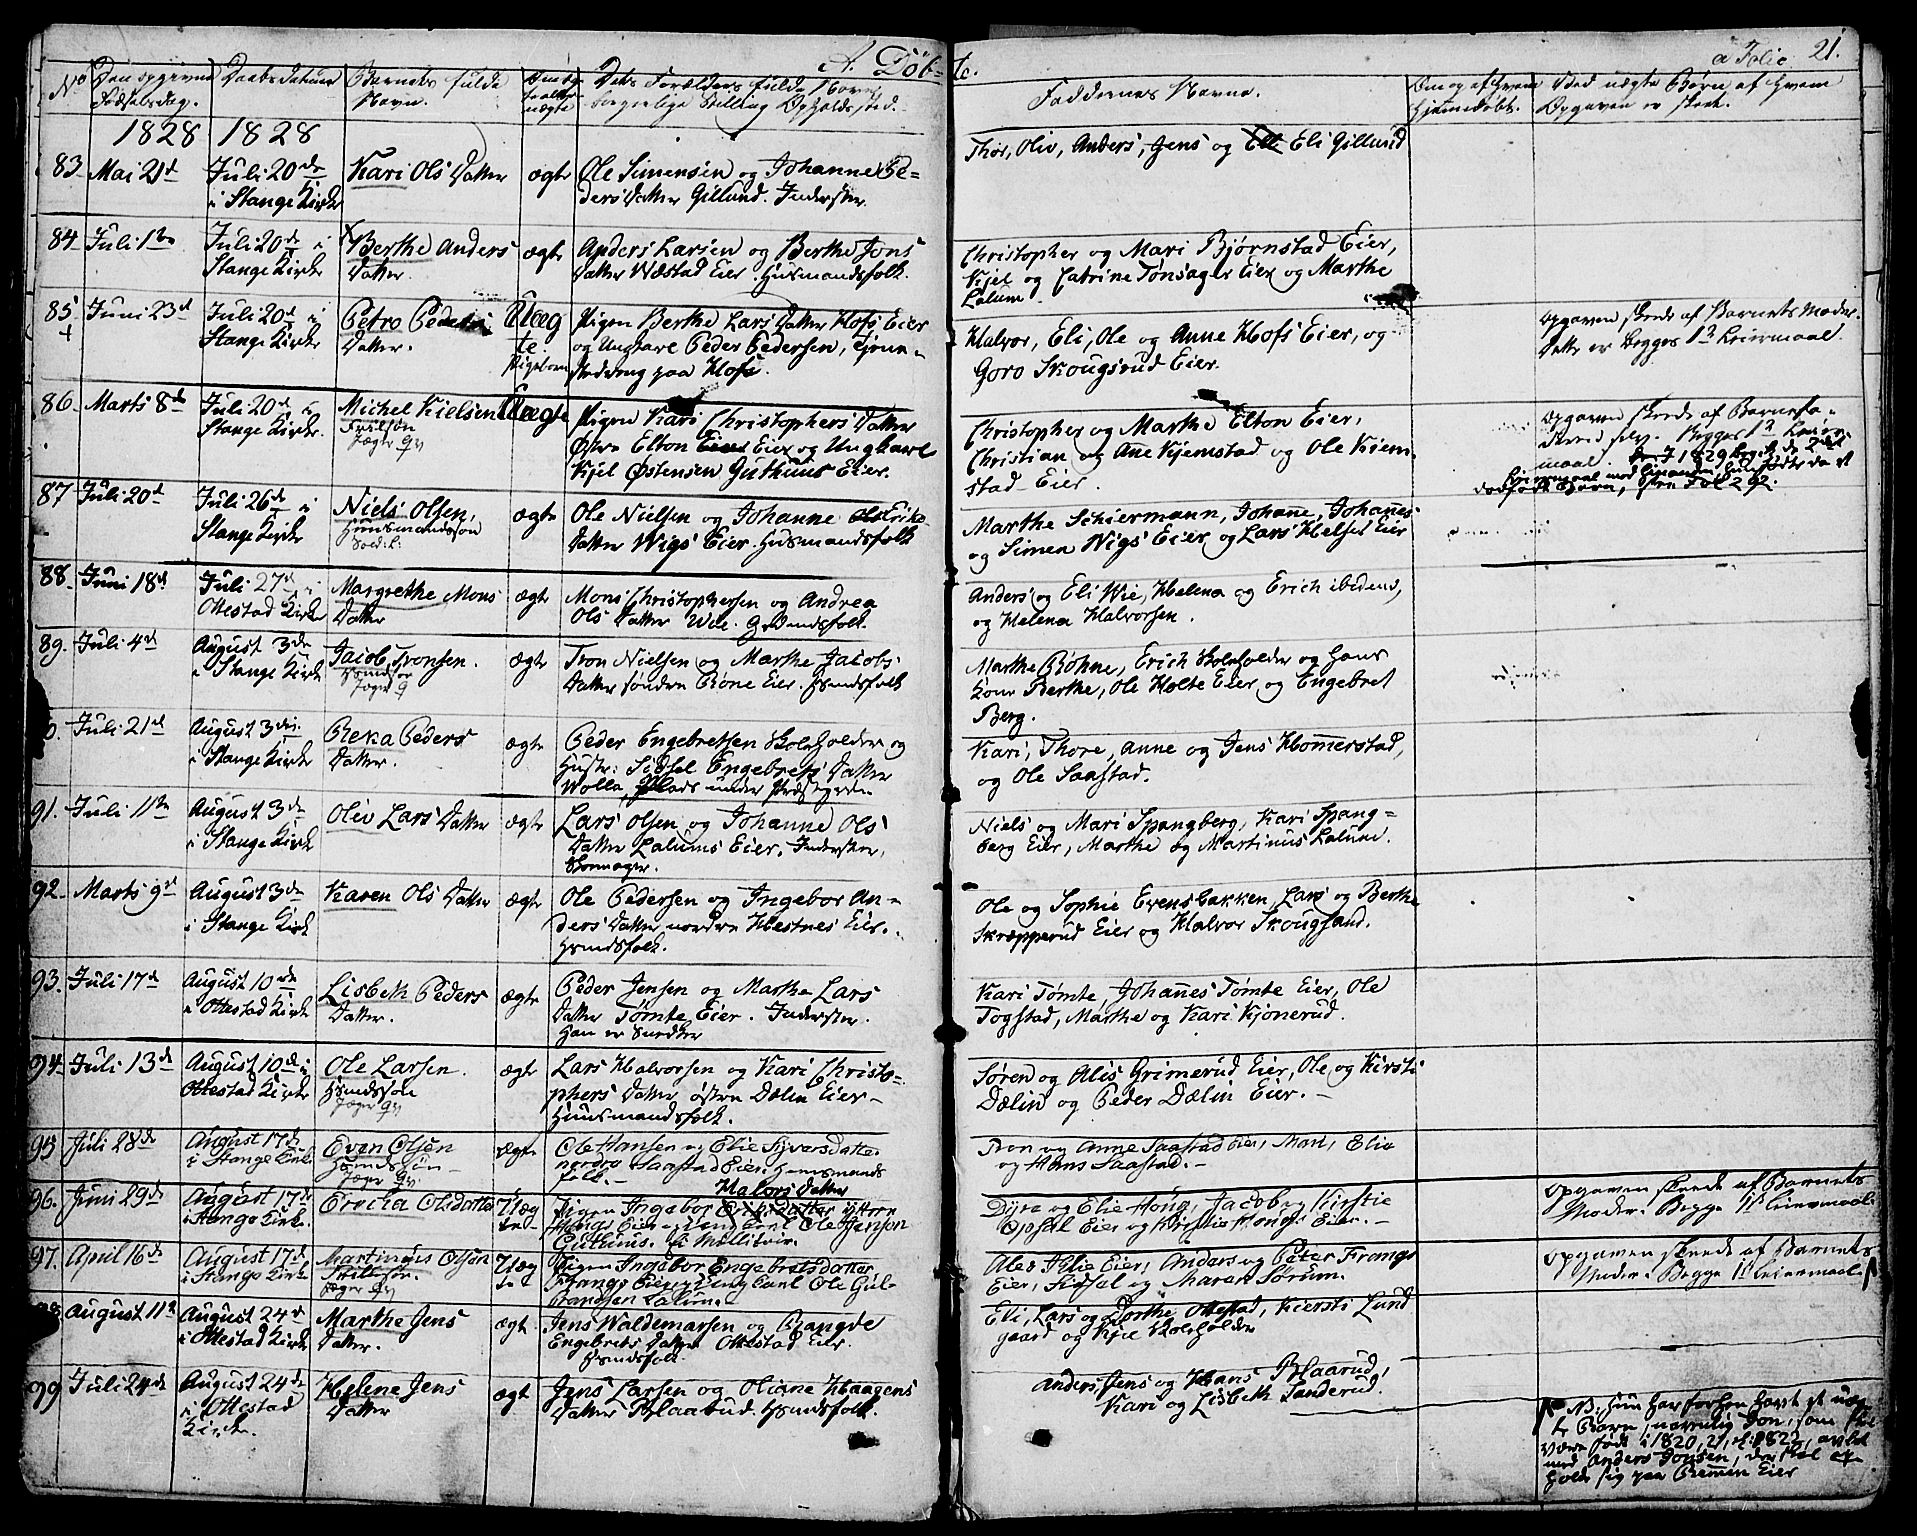 A. Döbte.
a Folio 21.
No Den opgivne Fødselsdag. Daabsdatum Barnets fulde Navn. ægte uægte Dets Forældres fulde Navne borgerlige Stilling Opholdssted.
Faddernes Navne. Om og af hvem Hjemmedøbt. Ved uægte Børn af hvem Opgaven er skeet.
1828 1828
83. Mai 21d Juli 20de i Stange Kirke Kari Ols Datter ægte Ole Simensen og Johanne Pe-
ders Datter Gillund. Inderster.
Thor, Oliv, Anders, Jens og Eli Gillund
84 Juli 1te Juli 20de i Stange Kirke Berthe Anders Datter. ægte Anders Larsen og Berthe Jons
Datter Wæstad Eier. Huusmandsfolk.
Christopher og Mari Bjørnstad Eier,
Kjel og Catrine Tønsager Eier og Marthe
Lalum.
85 Juni 23d Juli 20d i Stange Kirke Petro Peders Datter. Uægte. Pigebarn Pigen Berthe Lars Datter Hofs Eier
og Ungkarl Peder Pedersen, tjenne-
stedreng paa Hofs.
Halvor, Eli, Ole og Anne Hofs Eier, og
Goro Skougsrud Eier.
Opgaven skede af Barnets Moder.
Dette er Begges 1te Leiermaal.
86. Marts 8de Juli 20d i Stange Kirke. Michel Kielsen Uægte Pigen Kari Christophers Datter
Østre Elton Eier og Ungkarl
Kjel Østensen Guthuus Eier.
Christopher og Marthe Elton Eier,
Christian og Ane Kjemstad og Ole Kjem-
stad Eier.
Opgaven skede af Barnefa-
deren selv. Begges 1te Leier-
maal.
87 Juli 20d Juli 26de i Stange Kirke Niels Olsen, Huusmandssøn ægte Ole Nielsen og Johanne Eriks
Datter Wigs Eier. Huusmandsfolk
Marthe Schiermann, Johane, Johañes
og Simen Wigs Eier og Lars Helset Eier
88. Juni 18d Juli 27d i Ottestad Kirke Margrethe Mons Datter ægte Mons Christophersen og Andrea
Ols Datter Wie. Grdmdsfolk.
Anders og Eli Wie, Helena og Erich ibidem,
og Helena Halvorsen.
89. Juli 4d August 3de i Stange Kirke Jacob Tronsen. ægte Tron Nielsen og Marthe Jacobs
Datter søndre Bøne Eier. Hsmdsfolk
Marthe Bøhne, Erich Skoleholder og hans
Kone Berthe, Ole Holte Eier og Engebret
Berg.
Juli 21d August 3die i Stange Kirke Reka Peders Datter. ægte Peder Engebretsen Skoleholder og
Hustr: Sidsel Engebrets Datter
Wolla, Plads under Præstegrden
Kari, Thore, Anne og Jens Hom̃erstad,
og Ole Saastad.
91. Juli 11te August 3de i Stange Kirke Oliv Lars Datter ægte Lars Olsen og Johanne Ols
Datter Lalums Eier. Inderster,
Skomager.
Niels og Mari Spangberg, Kari Spang-
berg Eier, Marthe og Martinus Lalum.
92. Marts 9d August 3de i Stange Kirke Karen Ols Datter ægte Ole Pedersen og Ingebor An-
ders Datter, nordre Hestnes Eier.
Hsmdsfolk.
Ole og Sophie Evensbakken, Lars og Berthe
Skræpperud Eier og Halvor Skougsand.
93. Juli 17d August 10de i Ottestad Kirke Lisbeth Peders Datter. ægte Peder Jensen og Marthe Lars
Datter Tømte Eier. Inderster.
Han er Snedker
Kari Tømte, Johañes Tømte Eier, Ole
Togstad, Marthe og Kari Kjonerud.
94 Juli 13d August 10de i Ottestad Kirke Ole Larsen. Hsmdssøn ægte Lars Halvorsen og Kari Christo-
phers Datter østre Dælin Eier-
Huusmandsfolk.
Søren og Alis Grimerud Eier, Ole og Kirsti
Dælin og Peder Dælin Eier.-
95 Juli 28de August 17de i Stange Kirke. Even Olsen Hsmdssøn ægte Ole Hansen og Elie Syversdatter
nordre Saastad Eier. Huusmands
folk.-
Tron og Anne Saastad Eier, Mari, Elia
og Hans Saastad.-
96. Juni 29de August 17de i Stange Kirke. Ericka Olsdatter Uægte Halvors Datter
Pigen Ingebor Eriks Datter yttre
Hougs Eier og Ungkarl Ole Jensen
Guthuus.
Dyre og Elie Houg, Jacob og Kirstie
Opsal Eier og Kirstie Hougs Eier.-
Opgaven skeede af Barnets
Moder. Begge 1te Leiermaal.
97. April 16de August 17de i Stange Kirke Martinuus Olsen Uægte Pigen Ingebor Engebretsdatter
Ungkarl Ole Gul-
brandsen Lalum.-
Eier, Anders og Peter Frang
Eier, Sidsel og Maren Sørum.
Opgaven skeede af Barnets
Moder. Begge 1te Leiermaal.
August 11te August 24d i Ottestad Kirke Marthe Jens Datter. ægte Jens Waldemarsen og Rangde
Engebrets Datter Ottestad Eier.
Hsmdsfolk.
Eli, Lars og Dorthe Ottestad, Kiersti Lund
gaard og Kjel Skoleholder
99 Juli 24de August 24de i Ottestad Kirke. Helene Jens Datter ægte Jens Larsen og Oliane Haagens
Datter Blaarud. Hsmdsfolk.
Anders, Jens og Hans Blaarud,
Kari og Lisbeth Sanderud.
NB. hun har forhen havt et uæg-
te Barn, navnlig Jon, som skal
være født i 1820, 21, el. 1822, avlet
med Anders Jonsen, der skal op-
holde sig paa Bremen Eier